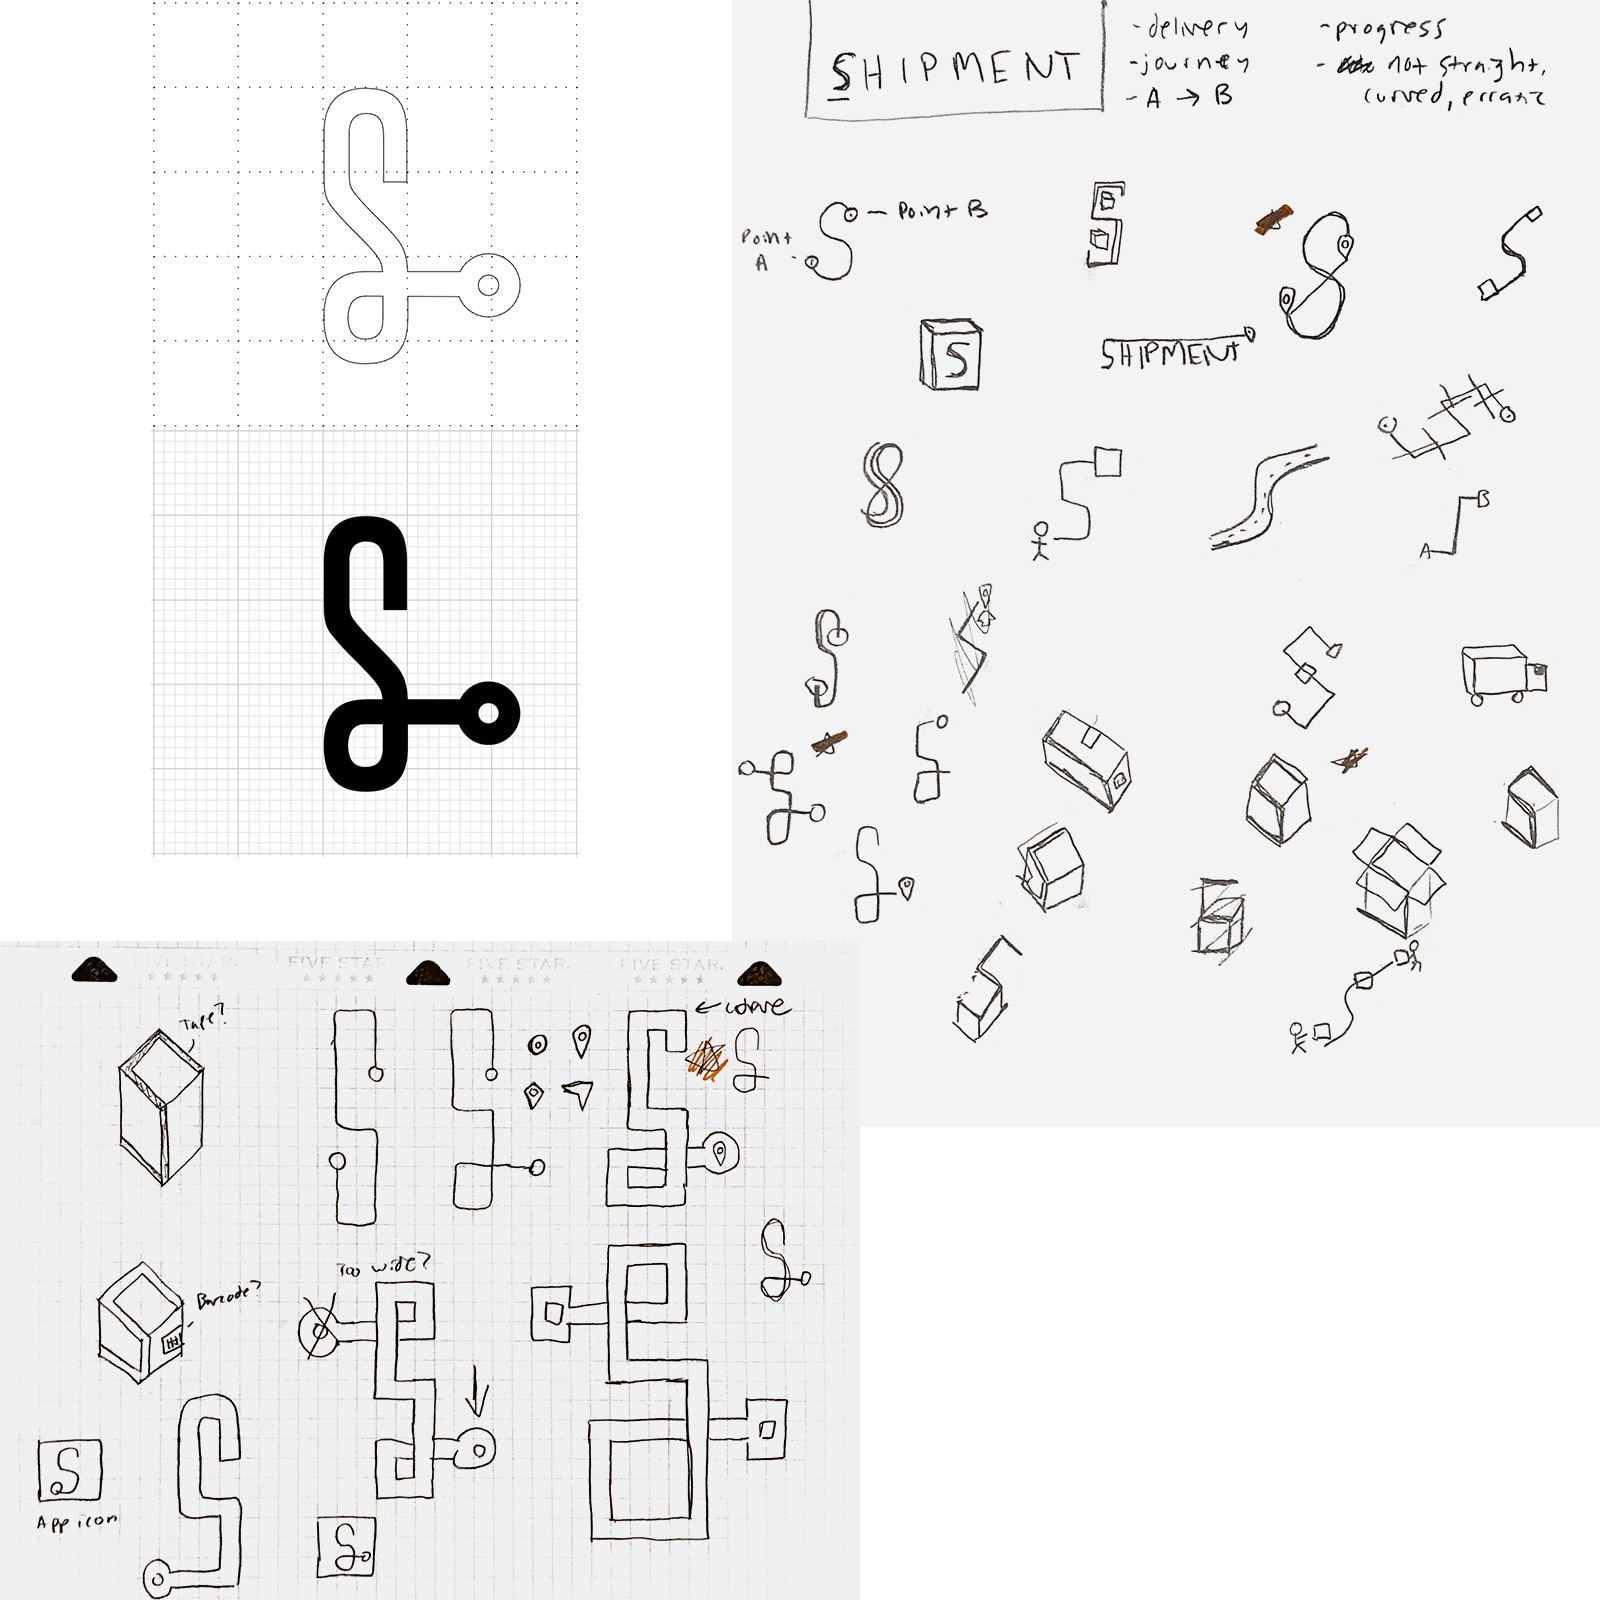 SHIPMENT
- delivery
- journey
- A → B
- progress
- not straight,
curved, erratic
Point A
Point B
B
S
SHIPMENT
B
A
FIVE STAR.
FIVE STAR.
FIVE STAR.
FIVE STAR.
Tape?
← curve
Too wide?
Barcode?
S
App icon